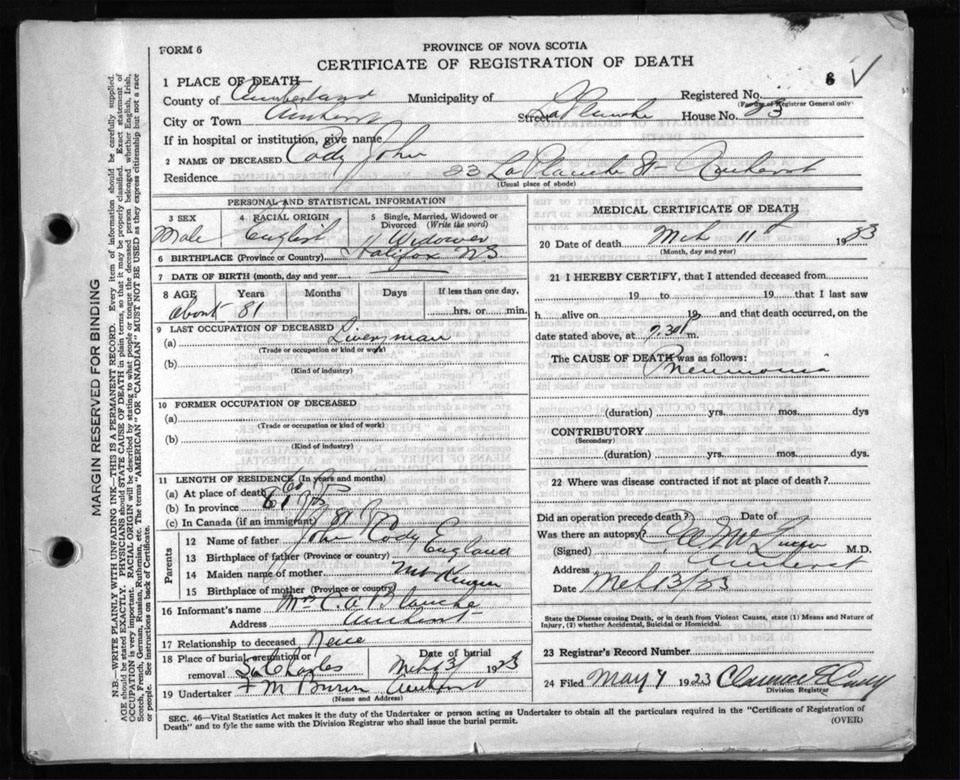 FORM 6
PROVINCE OF NOVA SCOTIA
CERTIFICATE OF REGISTRATION OF DEATH
MARGIN RESERVED FOR BINDING
N.B.—WRITE PLAINLY WITH UNFADING INK—THIS IS A PERMANENT RECORD. Every item of information should be carefully supplied.
AGE should be stated EXACTLY. PHYSICIANS should STATE CAUSE OF DEATH in plain terms, so that it may be properly classified. Exact statement of
OCCUPATION is very important. RACIAL ORIGIN will be described by stating to what people or tongue the deceased person belonged whether English, Irish,
Scotch, French, German, Russian, Ruthenian, etc. The terms "AMERICAN" OR "CANADIAN" MUST NOT BE USED as they express citizenship but not a race
or people. See instructions on back of Certificate.
1 PLACE OF DEATH
County of Cumberland Municipality of Registered No.
(For use of Registrar General only)
City or Town Amherst Street La Planche House No. 23
If in hospital or institution, give name
2 NAME OF DECEASED Cody John
Residence 23 La Planche St Amherst
(Usual place of abode)
PERSONAL AND STATISTICAL INFORMATION
3 SEX Male
4 RACIAL ORIGIN English
5 Single, Married, Widowed or Divorced (Write the word) Widower
6 BIRTHPLACE (Province or Country) Halifax NS
7 DATE OF BIRTH (month, day and year)
8 AGE Years Months Days If less than one day,
about 81 hrs. or min.
9 LAST OCCUPATION OF DECEASED
(a) Liveryman
(Trade or occupation or kind or work)
(b)
(Kind of industry)
10 FORMER OCCUPATION OF DECEASED
(a)
(Trade or occupation or kind of work)
(b)
(Kind of industry)
11 LENGTH OF RESIDENCE (In years and months)
(a) At place of death
(b) In province 81
(c) In Canada (if an immigrant) 81
Parents
12 Name of father John Cody
13 Birthplace of father (Province or country) England
14 Maiden name of mother
15 Birthplace of mother (Province or country)
16 Informant's name Mrs C. A. Blanche
Address Amherst
17 Relationship to deceased Neice
18 Place of burial, cremation or removal St Charles Date of burial Mch 13 1923
19 Undertaker F M Amherst
(Name and Address)
MEDICAL CERTIFICATE OF DEATH
20 Date of death Mch 11 1923
(Month, day and year)
21 I HEREBY CERTIFY, that I attended deceased from
19 to 19 that I last saw
h alive on 19 and that death occurred, on the
date stated above, at 7.30
The CAUSE OF DEATH was as follows:
Pneumonia
(duration) yrs. mos. dys
CONTRIBUTORY
(Secondary)
(duration) yrs. mos. dys.
22 Where was disease contracted if not at place of death?
Did an operation precede death? Date of
Was there an autopsy?
(Signed) M.D.
Address Amherst
Date Mch 13/23
State the Disease causing Death, or in death from Violent Causes, state (1) Means and Nature of
Injury, (2) whether Accidental, Suicidal or Homicidal.
23 Registrar's Record Number
24 Filed May 7 1923 Clarence E
Division Registrar
SEC. 46—Vital Statistics Act makes it the duty of the Undertaker or person acting as Undertaker to obtain all the particulars required in the "Certificate of Registration of
Death" and to fyle the same with the Division Registrar who shall issue the burial permit. (OVER)